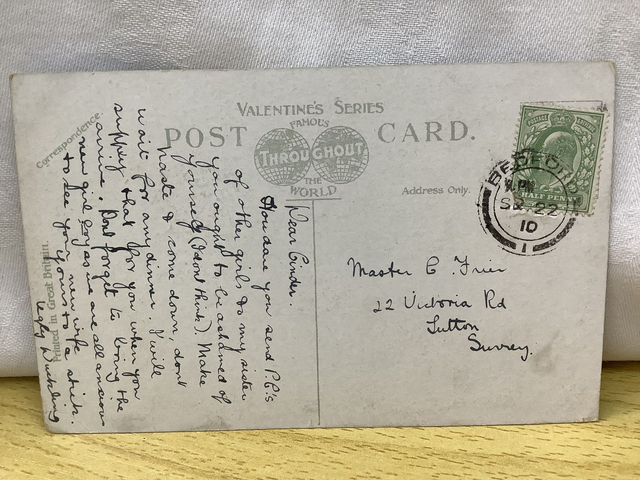 VALENTINE'S SERIES
FAMOUS
THROUGHOUT
THE
WORLD
POST CARD.
Correspondence.
Address Only.
Printed in Great Britain.
Dear Cinder.
How dare you send P.P.C's
of other girls to my sister
you ought to be ashamed of
yourself (I dont think). Make
haste & come down, dont
wait for any dinner. I will
supply that for you when you
arrive. Dont forget to bring the
new girl as we are all anxious
to see your new wife
Yours to a stick.
Ugly Duckling
BEDFORD
PM
SP 22
10
1
Master C. Frier
22 Victoria Rd
Sutton
Surrey.